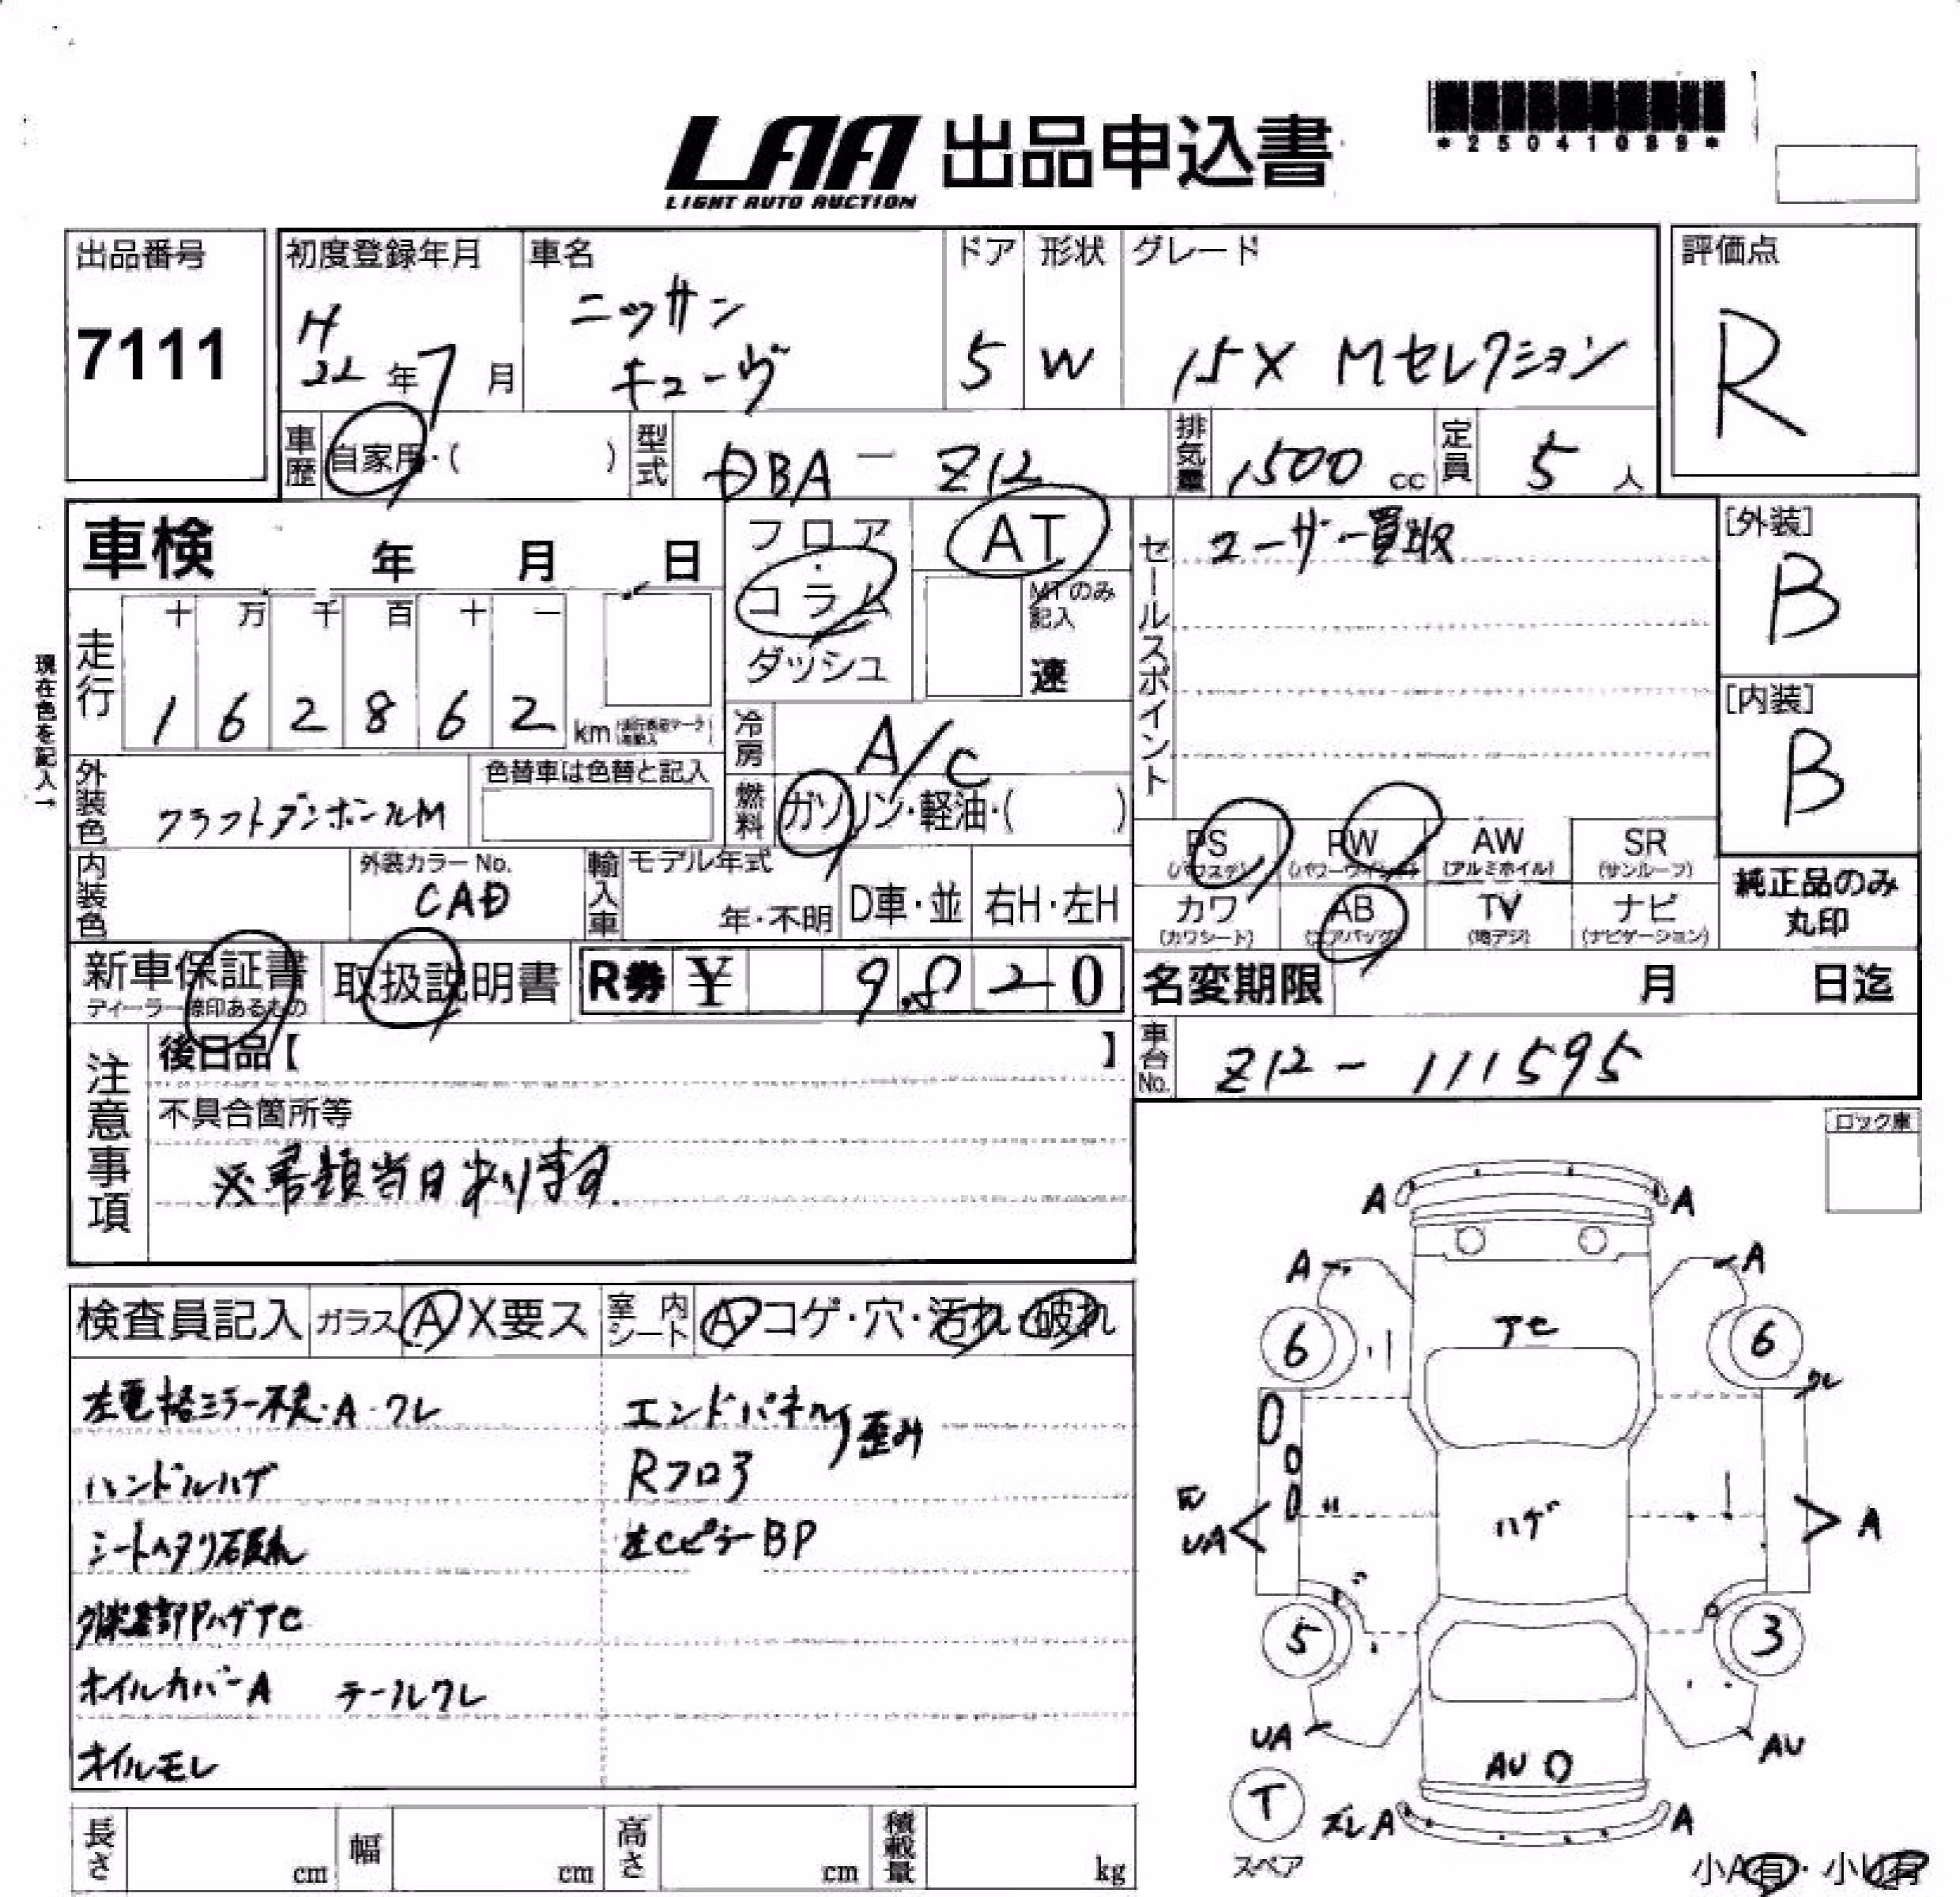 *25041089*
LAA 出品申込書
LIGHT AUTO AUCTION
出品番号
7111
初度登録年月
H
22年7月
車名
ニッサン
キューヴ
ドア
5
形状
W
グレード
15X Mセレクション
評価点
R
車歴
自家用・( )
型式
DBA-Z12
排気量
1,500 cc
定員
5人
車検 年 月 日
フロア
・
コラム
ダッシュ
AT
MTのみ
記入
速
セールスポイント
ユーザー買取
[外装]
B
現在色を記入→
走行
十 万 千 百 十 一
1 6 2 8 6 2 km
冷房
A/C
[内装]
B
外装色
クラフトダンボールM
色替車は色替と記入
燃料
ガソリン・軽油・( )
PS
(パワステ)
PW
(パワーウインドウ)
AW
(アルミホイル)
SR
(サンルーフ)
内装色
外装カラー No.
CAD
輸入車
モデル年式
年・不明
D車・並
右H・左H
カワ
(カワシート)
AB
(エアバッグ)
TV
(地デジ)
ナビ
(ナビゲーション)
純正品のみ
丸印
新車保証書
ディーラー捺印あるもの
取扱説明書
R券 ¥ 9,820
名変期限 月 日迄
注意事項
後日品【 】
車台No.
Z12-111595
不具合箇所等
※書類当日有ります
ロック車
検査員記入
ガラス A X要ス
室内シート
A・コゲ・穴・汚れ・破れ
左電格ミラー不良・A・ワレ
ハンドルハゲ
シートヘタリ破れ
外装各部Pハゲアセ
ホイルカバーA テールワレ
オイルモレ
エンドパネル
Rフロア
歪み
左CピラーBP
A A
A A
アセ
6 6
ワレ
ハゲ
UA A
5 3
UA AU
AU
T
スペア
ズレA A
小A有・小U有
長さ cm
幅 cm
高さ cm
積載量 kg